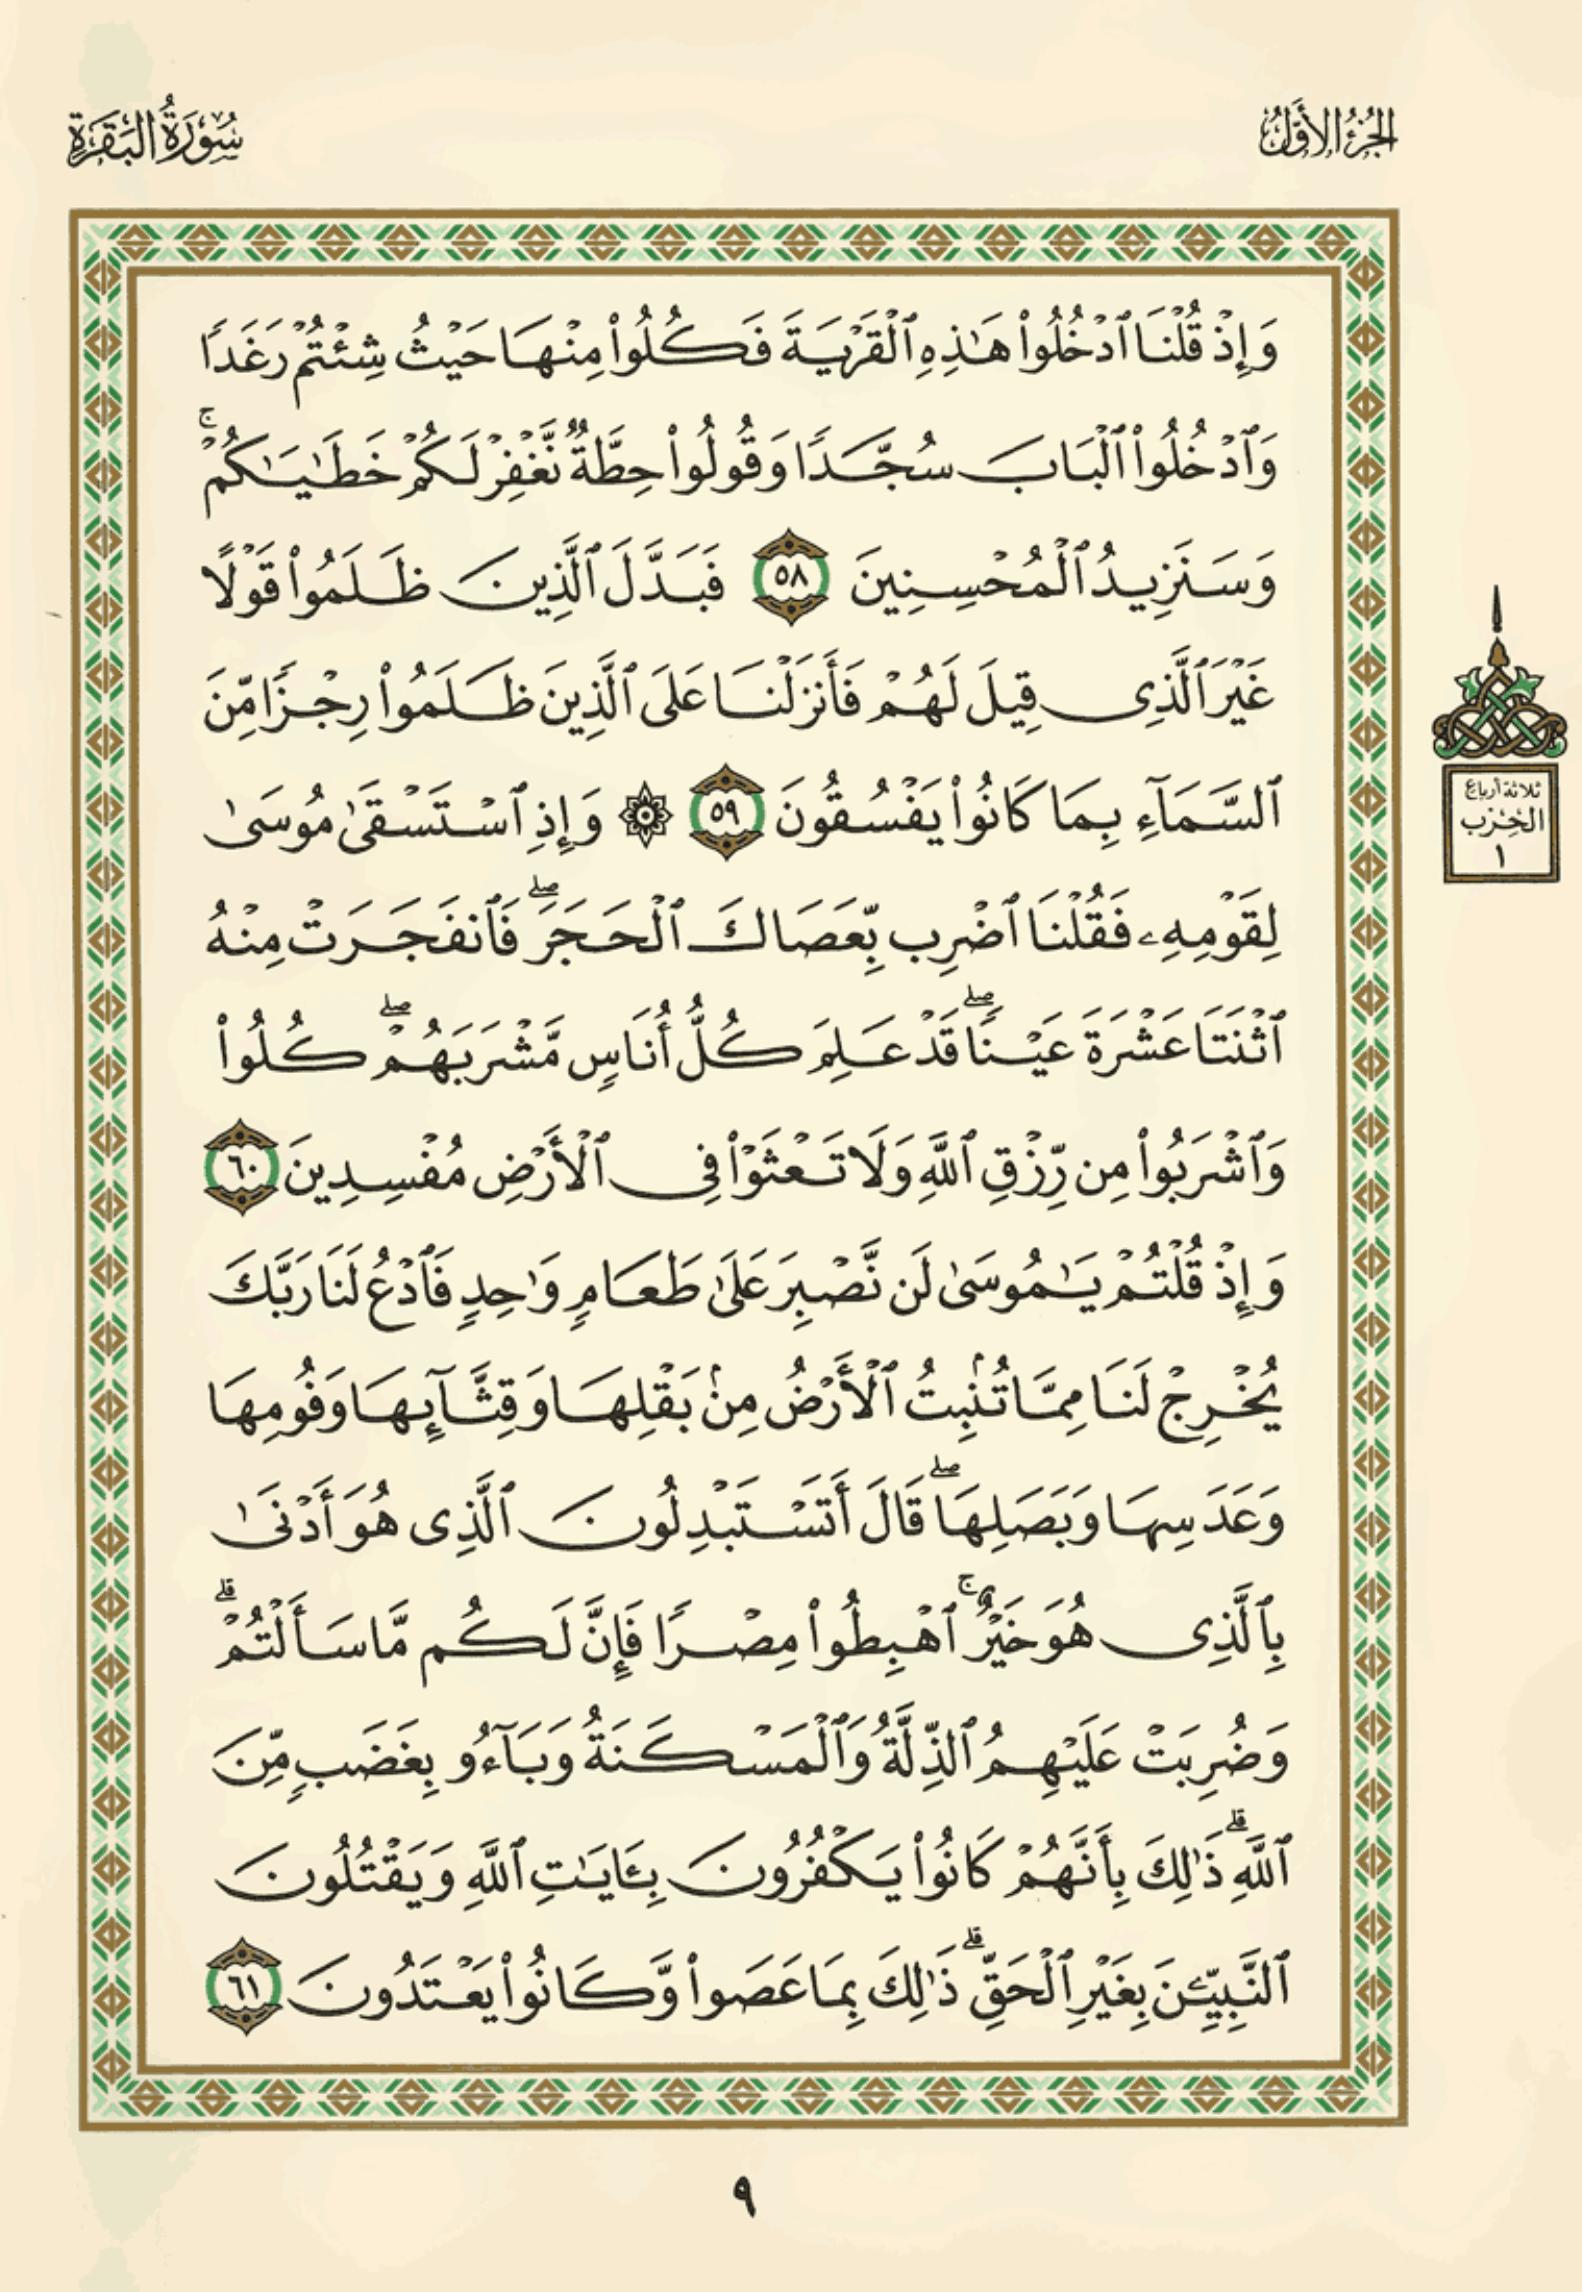 الجزء الأول
سورة البقرة
وَإِذْ قُلْنَا ٱدْخُلُوا۟ هَـٰذِهِ ٱلْقَرْيَةَ فَكُلُوا۟ مِنْهَا حَيْثُ شِئْتُمْ رَغَدًا
وَٱدْخُلُوا۟ ٱلْبَابَ سُجَّدًا وَقُولُوا۟ حِطَّةٌ نَّغْفِرْ لَكُمْ خَطَـٰيَـٰكُمْ ۚ
وَسَنَزِيدُ ٱلْمُحْسِنِينَ ٥٨ فَبَدَّلَ ٱلَّذِينَ ظَلَمُوا۟ قَوْلًا
غَيْرَ ٱلَّذِى قِيلَ لَهُمْ فَأَنزَلْنَا عَلَى ٱلَّذِينَ ظَلَمُوا۟ رِجْزًا مِّنَ
ٱلسَّمَآءِ بِمَا كَانُوا۟ يَفْسُقُونَ ٥٩ ۞ وَإِذِ ٱسْتَسْقَىٰ مُوسَىٰ
لِقَوْمِهِۦ فَقُلْنَا ٱضْرِب بِّعَصَاكَ ٱلْحَجَرَ ۖ فَٱنفَجَرَتْ مِنْهُ
ٱثْنَتَا عَشْرَةَ عَيْنًا ۖ قَدْ عَلِمَ كُلُّ أُنَاسٍ مَّشْرَبَهُمْ ۖ كُلُوا۟
وَٱشْرَبُوا۟ مِن رِّزْقِ ٱللَّهِ وَلَا تَعْثَوْا۟ فِى ٱلْأَرْضِ مُفْسِدِينَ ٦٠
وَإِذْ قُلْتُمْ يَـٰمُوسَىٰ لَن نَّصْبِرَ عَلَىٰ طَعَامٍ وَٰحِدٍ فَٱدْعُ لَنَا رَبَّكَ
يُخْرِجْ لَنَا مِمَّا تُنۢبِتُ ٱلْأَرْضُ مِنۢ بَقْلِهَا وَقِثَّآئِهَا وَفُومِهَا
وَعَدَسِهَا وَبَصَلِهَا ۖ قَالَ أَتَسْتَبْدِلُونَ ٱلَّذِى هُوَ أَدْنَىٰ
بِٱلَّذِى هُوَ خَيْرٌ ۚ ٱهْبِطُوا۟ مِصْرًا فَإِنَّ لَكُم مَّا سَأَلْتُمْ ۗ
وَضُرِبَتْ عَلَيْهِمُ ٱلذِّلَّةُ وَٱلْمَسْكَنَةُ وَبَآءُو بِغَضَبٍ مِّنَ
ٱللَّهِ ۗ ذَٰلِكَ بِأَنَّهُمْ كَانُوا۟ يَكْفُرُونَ بِـَٔايَـٰتِ ٱللَّهِ وَيَقْتُلُونَ
ٱلنَّبِيِّـۧنَ بِغَيْرِ ٱلْحَقِّ ۗ ذَٰلِكَ بِمَا عَصَوا۟ وَّكَانُوا۟ يَعْتَدُونَ ٦١
ثلاثة أرباع
الحزب
١
٩